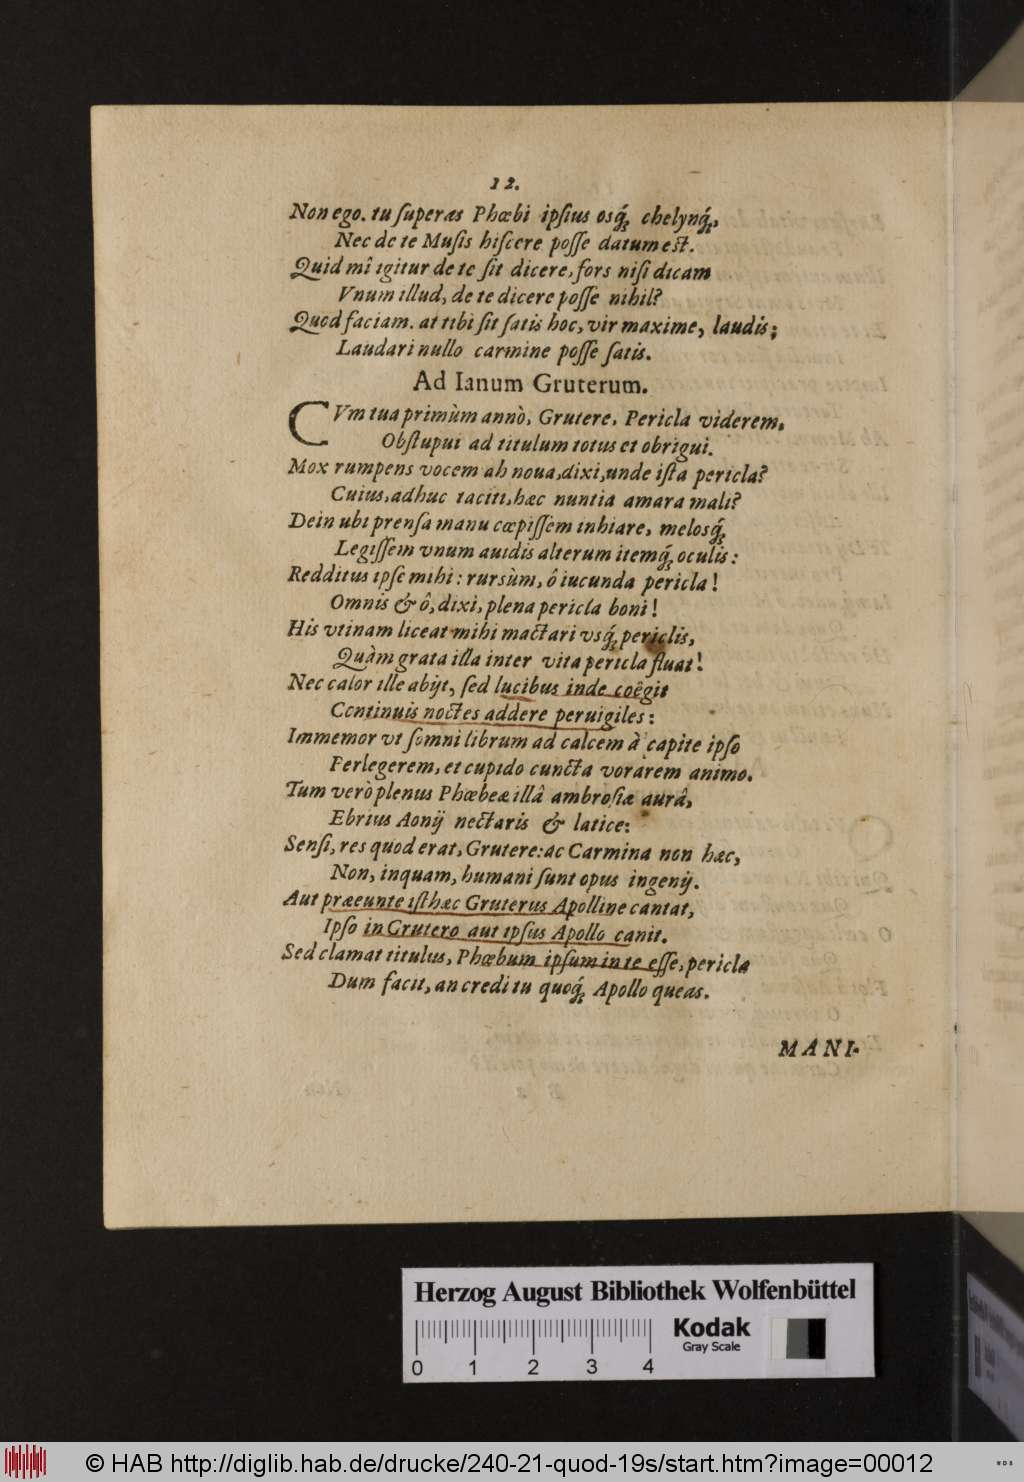 12.
Non ego. tu ſuperas Phœbi ipſius osq́ꝫ chelynq́ꝫ,
Nec de te Muſis hiſcere poſſe datum eſt.
Quid mî igitur de te ſit dicere, fors niſi dicam
Vnum illud, de te dicere poſſe nihil?
Quod faciam. at tibi ſit ſatis hoc, vir maxime, laudis;
Laudari nullo carmine poſſe ſatis.
Ad Ianum Gruterum.
CVm tua primùm annò, Grutere, Pericla viderem,
Obſtupui ad titulum totus et obrigui.
Mox rumpens vocem ah noua, dixi, unde iſta pericla?
Cuius, adhuc taciti, hæc nuntia amara mali?
Dein ubi prenſa manu cœpiſſem inhiare, melosq́ꝫ
Legiſſem vnum auidis alterum itemq́ꝫ oculis:
Redditus ipſe mihi: rursùm, ô iucunda pericla!
Omnis & ô, dixi, plena pericla boni!
His vtinam liceat mihi mactari vsq́ꝫ periclis,
Quàm grata illa inter vita pericla fluat!
Nec calor ille abijt, ſed lucibus inde coêgit
Continuis noctes addere peruigiles:
Immemor vt ſomni librum ad calcem à capite ipſo
Perlegerem, et cupido cuncta vorarem animo.
Tum verò plenus Phœbeæ illâ ambroſiæ aurâ,
Ebrius Aonij nectaris & latice:
Senſi, res quod erat, Grutere: ac Carmina non hæc,
Non, inquam, humani ſunt opus ingenij.
Aut præeunte iſthæc Gruterus Apolline cantat,
Ipſo in Grutero aut ipſus Apollo canit.
Sed clamat titulus, Phœbum ipſum in te eſſe, pericla
Dum facit, an credi tu quoq́ꝫ Apollo queas.
MANI-
Herzog August Bibliothek Wolfenbüttel
Kodak
Gray Scale
0 1 2 3 4
© HAB http://diglib.hab.de/drucke/240-21-quod-19s/start.htm?image=00012